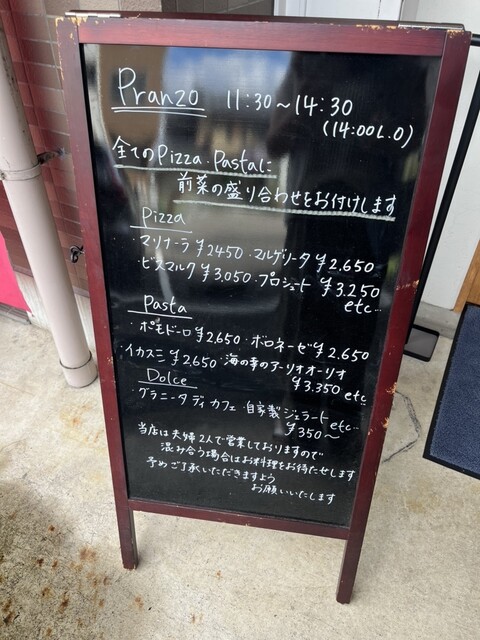 Pranzo 11:30～14:30
(14:00L.O)
全てのPizza・Pastaに
前菜の盛り合わせをお付けします
Pizza
・マリナーラ ¥2450 ・マルゲリータ ¥2.650
・ビスマルク ¥3.050 ・プロシュート ¥3.250
etc…
Pasta
・ポモドーロ ¥2.650 ・ボロネーゼ ¥2.650
・イカスミ ¥2.650 ・海の幸のアーリオオーリオ
¥3.350 etc…
Dolce
・グラニータ ディ カフェ ・自家製 ジェラート etc…
¥350～
当店は夫婦2人で営業しておりますので
混み合う場合はお料理をお待たせします
予めご了承いただきますよう
お願いいたします